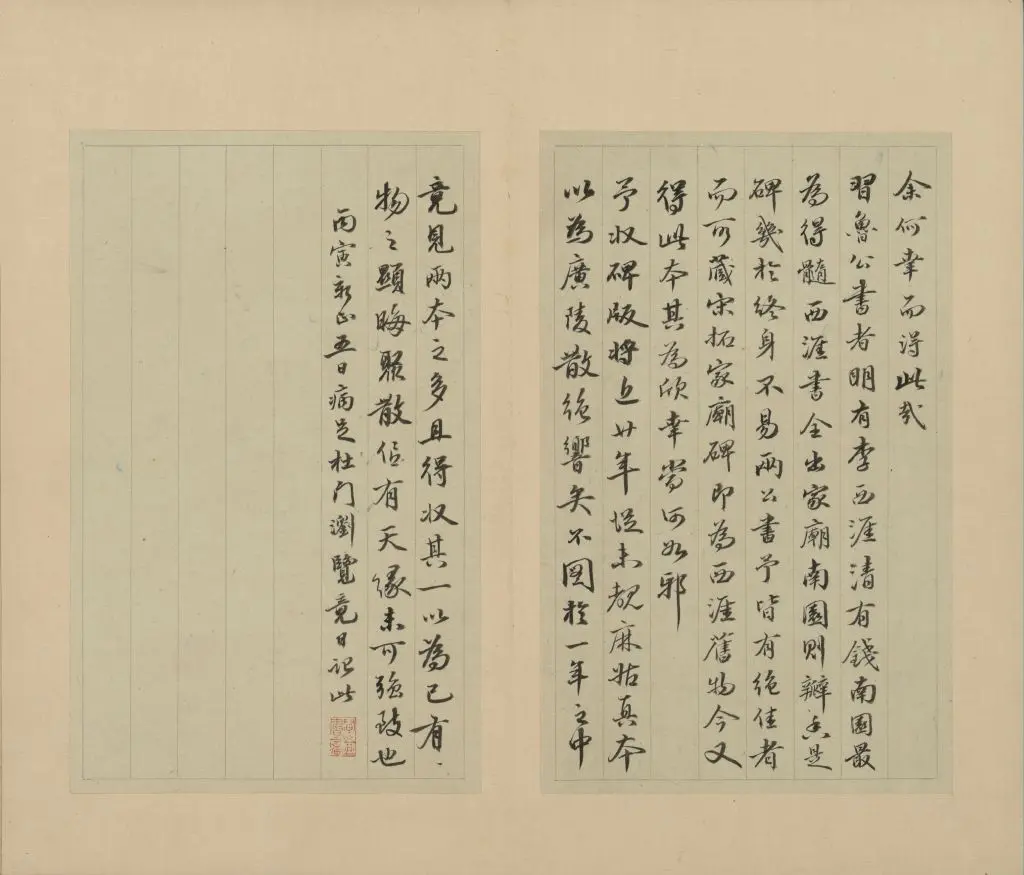 余何幸而得此哉
習魯公書者明有李西涯清有錢南園最
為得髓西涯書全出家廟南園則瓣香是
碑幾於終身不易兩公書予皆有絶佳者
而所藏宋拓家廟碑即為西涯舊物今又
得此本其為欣幸當何如邪
予收碑版將近廿年從未覩麻姑真本
以為廣陵散絶響矣不圖於一年之中
竟見兩本之多且得收其一以為己有
物之顯晦聚散信有天緣未可強致也
丙寅新正五日病足杜門瀏覽竟日記此